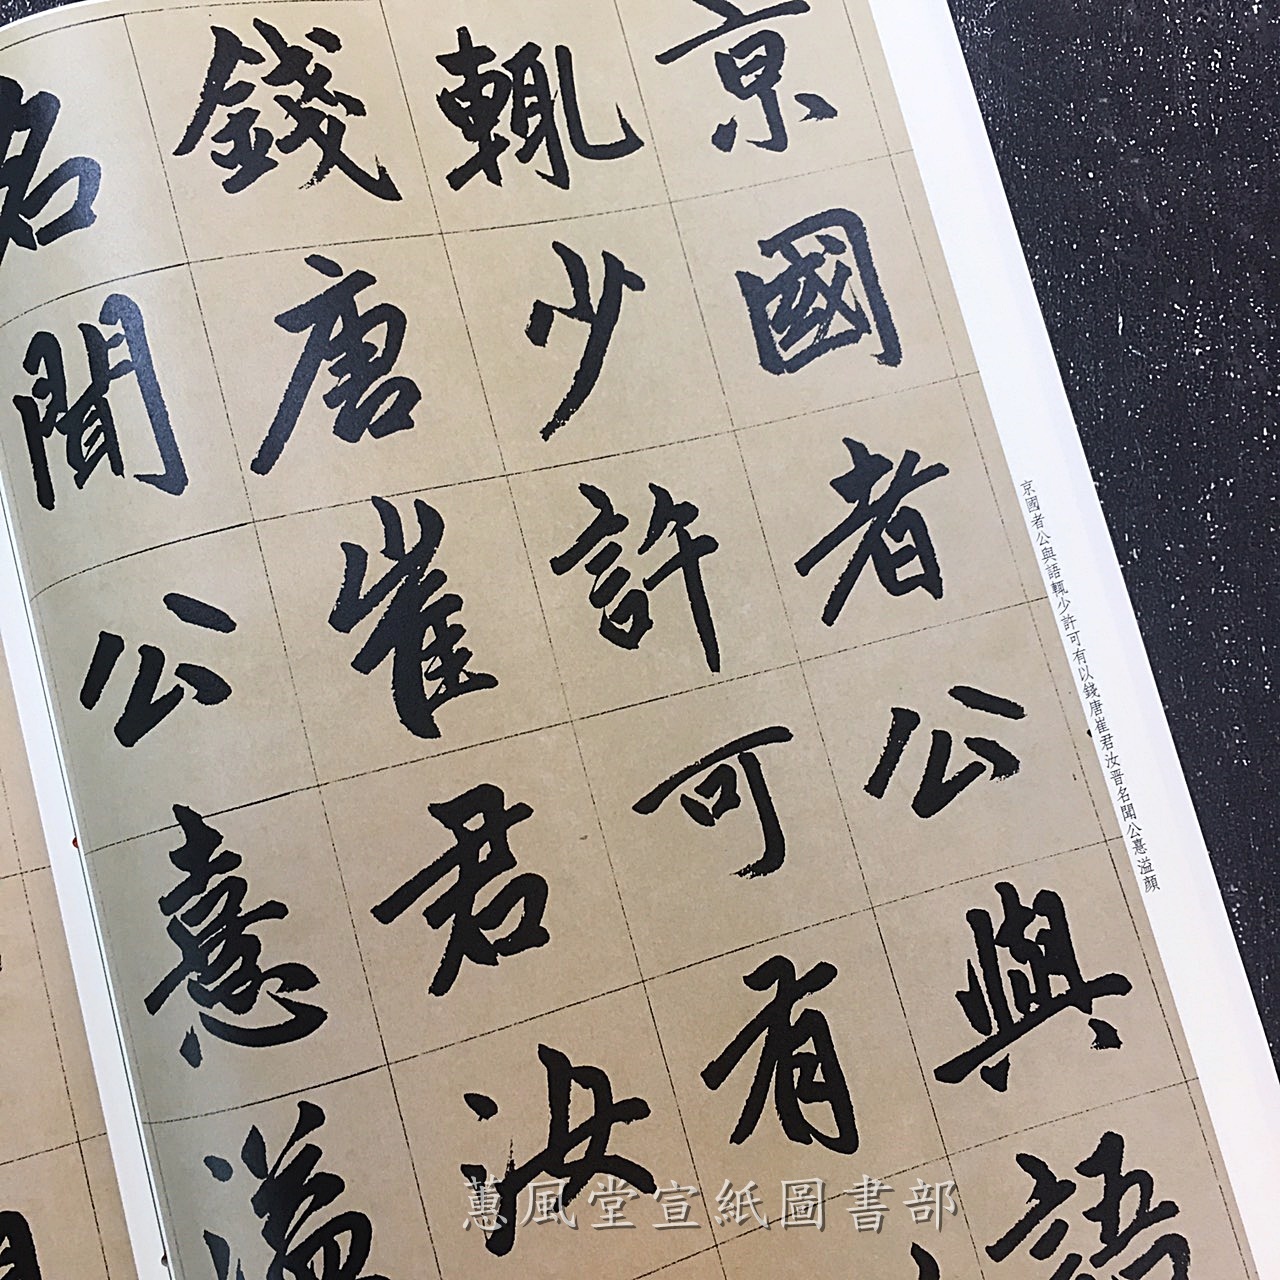 京國者公與語
輒少許可有
錢唐崔君汝
名聞公憙溢
京國者公與語輒少許可有以錢唐崔君汝晋名聞公憙溢顏
蕙風堂宣紙圖書部